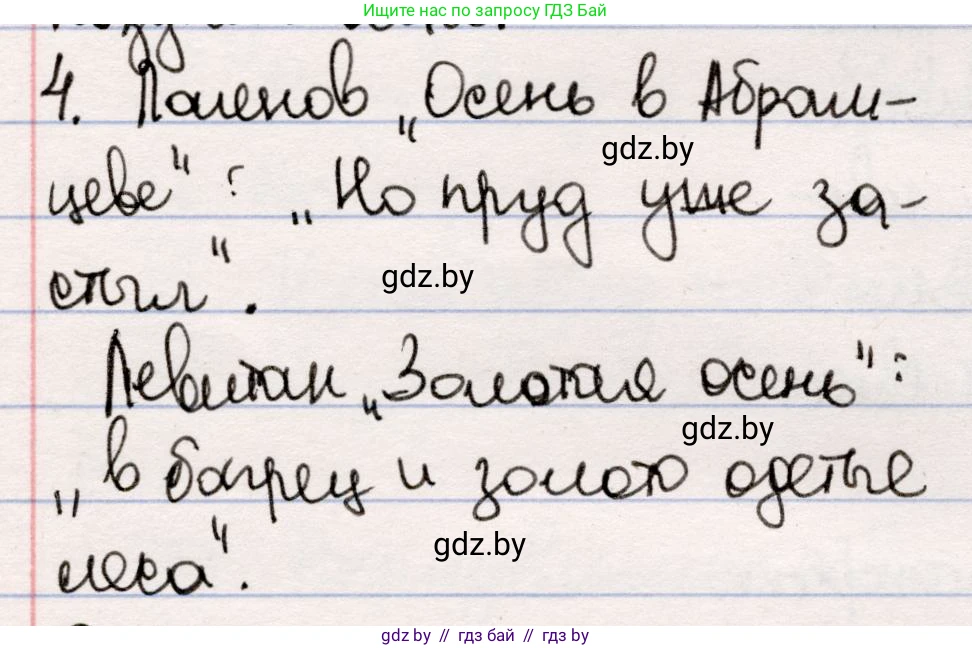 Ищите нас по запросу ГДЗ Бай
4. Паленов „Осень в Абрам-
gdz.by
цеве": „Но пруд уже за-
gdz.by
стыл".
Левитан „Золотая осень":
gdz.by
„в багрец и золото одетые
gdz.by
леса".
gdz by // гдз бай // гдз by